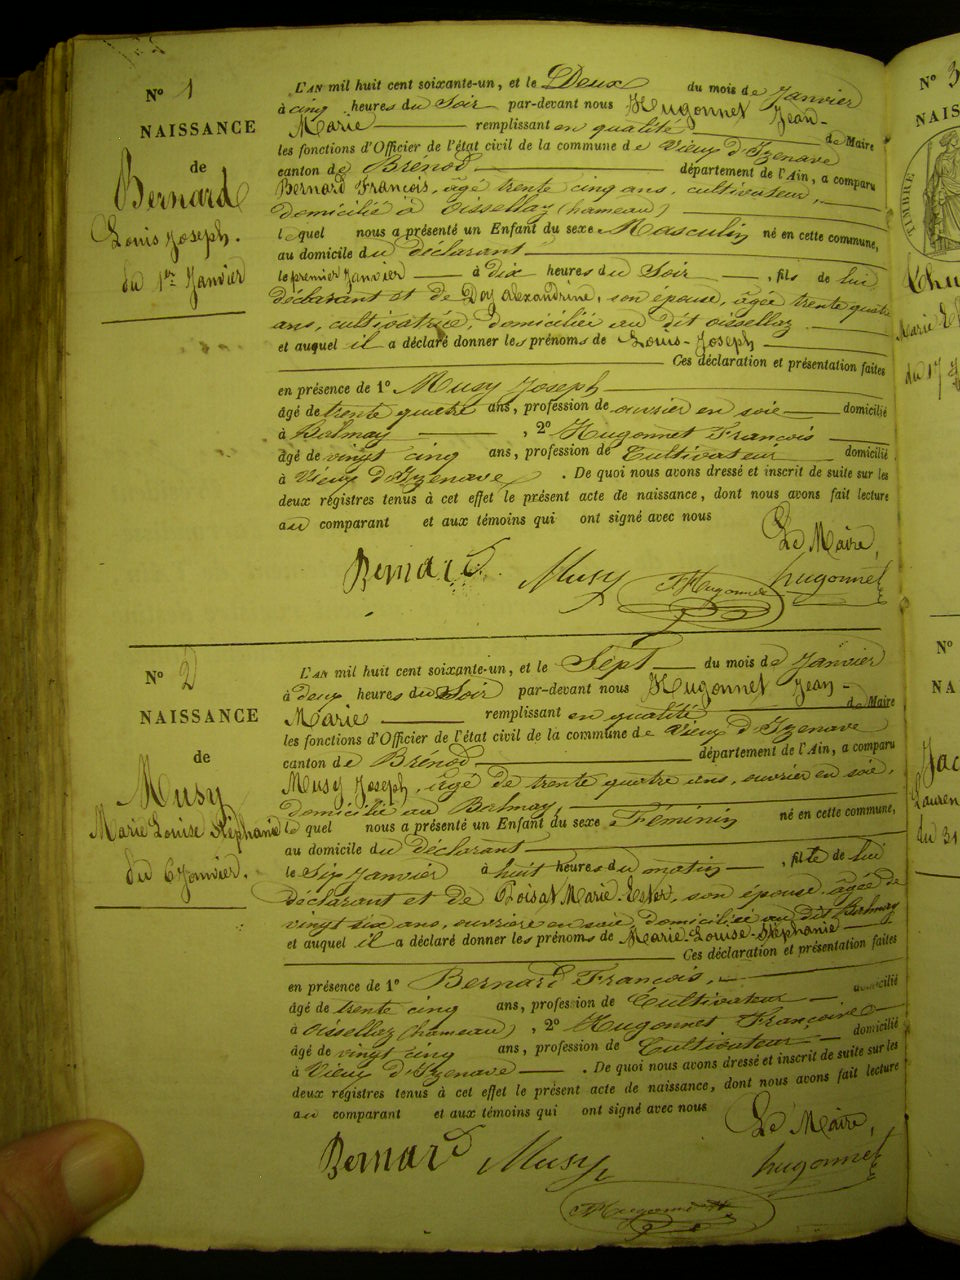 N° 1
NAISSANCE
de
Bernard
Louis Joseph.
du 1er Janvier
L'AN mil huit cent soixante-un, et le Deux du mois de Janvier
à cinq heures du Soir par-devant nous Hugonnet Jean-
Marie remplissant en qualité de Maire
les fonctions d'Officier de l'état civil de la commune de Vieux d'Izenave
canton de Brénod département de l'Ain, a comparu
Bernard François, âgé trente cinq ans, cultivateur,
domicilié à Oissellaz (hameau)
lequel nous a présenté un Enfant du sexe Masculin né en cette commune,
au domicile du déclarant
le premier Janvier à dix heures du Soir, fils de lui
déclarant et de Doy Alexandrine, son épouse, âgée trente quatre
ans, cultivatrice, domiciliée au dit Oissellaz
et auquel il a déclaré donner les prénoms de Louis-Joseph
Ces déclaration et présentation faites
en présence de 1° Musy Joseph
âgé de trente quatre ans, profession de ouvrier en soie domicilié
à Balmay, 2° Hugonnet François
âgé de vingt cinq ans, profession de Cultivateur domicilié
à Vieux d'Izenave. De quoi nous avons dressé et inscrit de suite sur les
deux registres tenus à cet effet le présent acte de naissance, dont nous avons fait lecture
au comparant et aux témoins qui ont signé avec nous
Le Maire,
Bernard Musy F Hugonnet hugonnet
N° 2
NAISSANCE
de
Musy
Marie Louise Stéphanie
du 6 Janvier.
L'AN mil huit cent soixante-un, et le Sept du mois de Janvier
à deux heures du Soir par-devant nous Hugonnet Jean-
Marie remplissant en qualité de Maire
les fonctions d'Officier de l'état civil de la commune de Vieux d'Izenave
canton de Brénod département de l'Ain, a comparu
Musy Joseph, âgé de trente quatre ans, ouvrier en soie,
domicilié au Balmay,
le quel nous a présenté un Enfant du sexe Féminin né en cette commune,
au domicile du déclarant
le Six Janvier à huit heures du matin, fille de lui
déclarant et de Poisat Marie-Ester, son épouse, âgée de
vingt six ans, ouvrière en soie, domiciliée au dit Balmay
et auquel il a déclaré donner les prénoms de Marie-Louise-Stéphanie
Ces déclaration et présentation faites
en présence de 1° Bernard François,
âgé de trente cinq ans, profession de Cultivateur domicilié
à Oissellaz (hameau), 2° Hugonnet François
âgé de vingt cinq ans, profession de Cultivateur domicilié
à Vieux d'Izenave. De quoi nous avons dressé et inscrit de suite sur les
deux registres tenus à cet effet le présent acte de naissance, dont nous avons fait lecture
au comparant et aux témoins qui ont signé avec nous
Le Maire,
Bernard Musy hugonnet
F Hugonnet
N° 3
NAIS
TIMBRE
Marie
du 17
N°
NA
Jac
Lauren
du 31